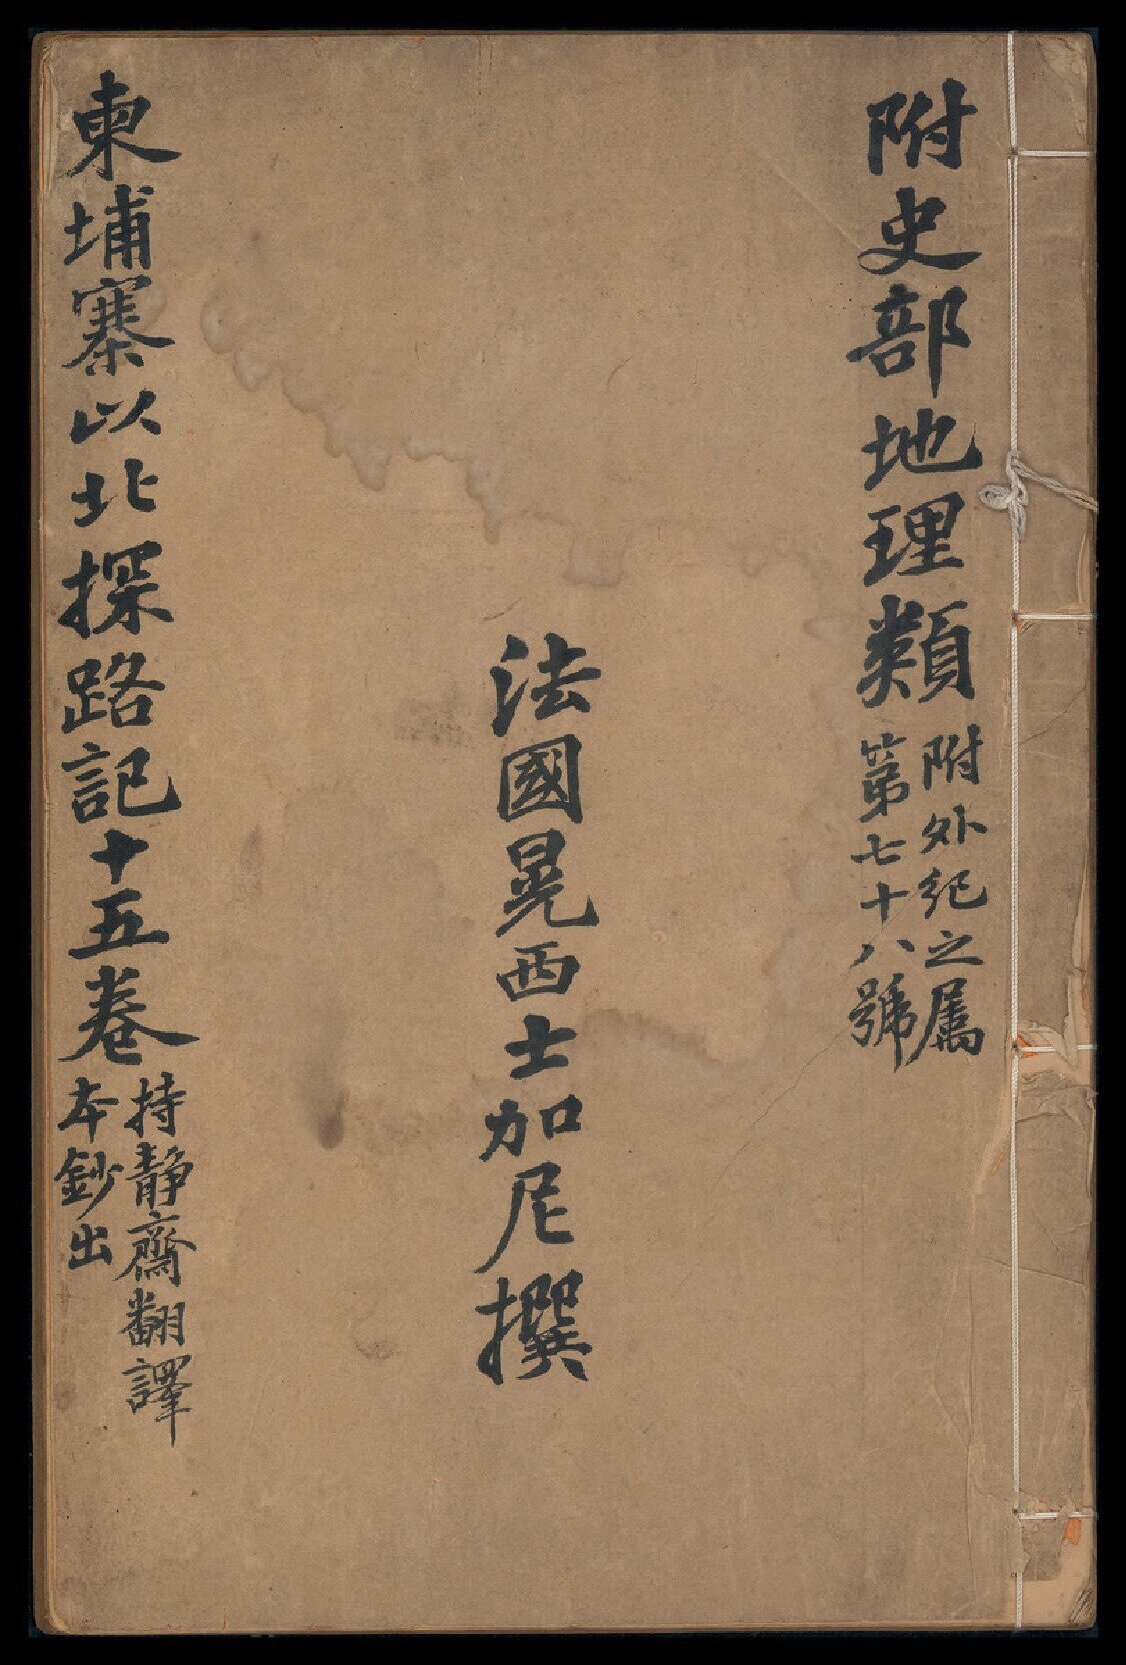 附史部地理類
附外紀之屬
第七十八號
法國晃西士加尼撰
柬埔寨以北探路記十五卷
持靜齋翻譯
本鈔出